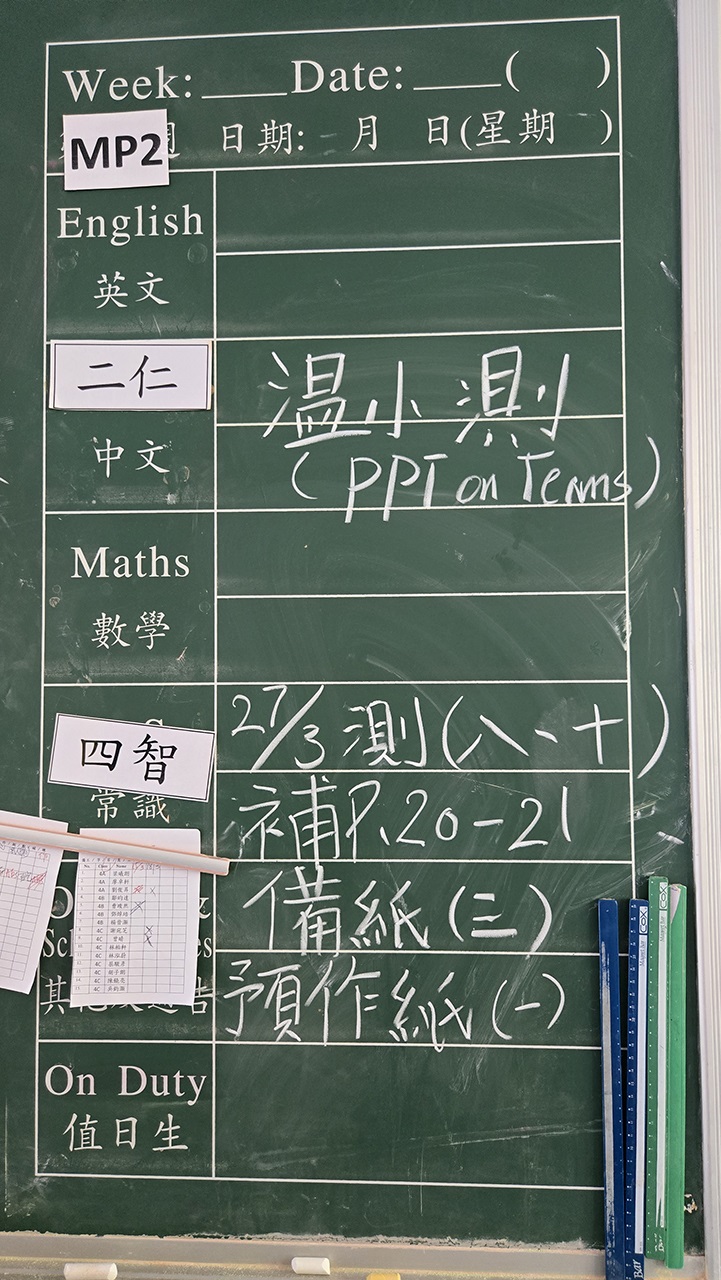 Week: ____Date: ____( )
日期: 月 日(星期 )
MP2
English
英文
二仁
温小測
中文
(PPT on Teams)
Maths
數學
27/3 測(八、十)
四智
常識
補P.20-21
備紙(三)
預作紙(一)
On Duty
值日生